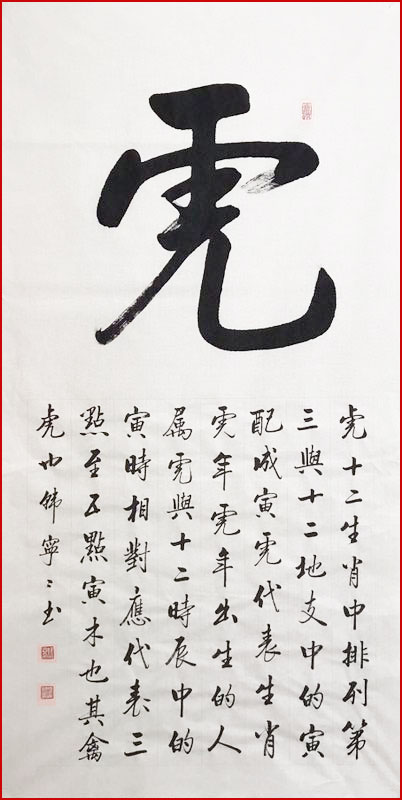 虎
虎十二生肖中排列第
三與十二地支中的寅
配成寅虎代表生肖
虎年虎年出生的人
属虎與十二時辰中的
寅時相對應代表三
點至五點寅木也其禽
虎也韩寧〻书